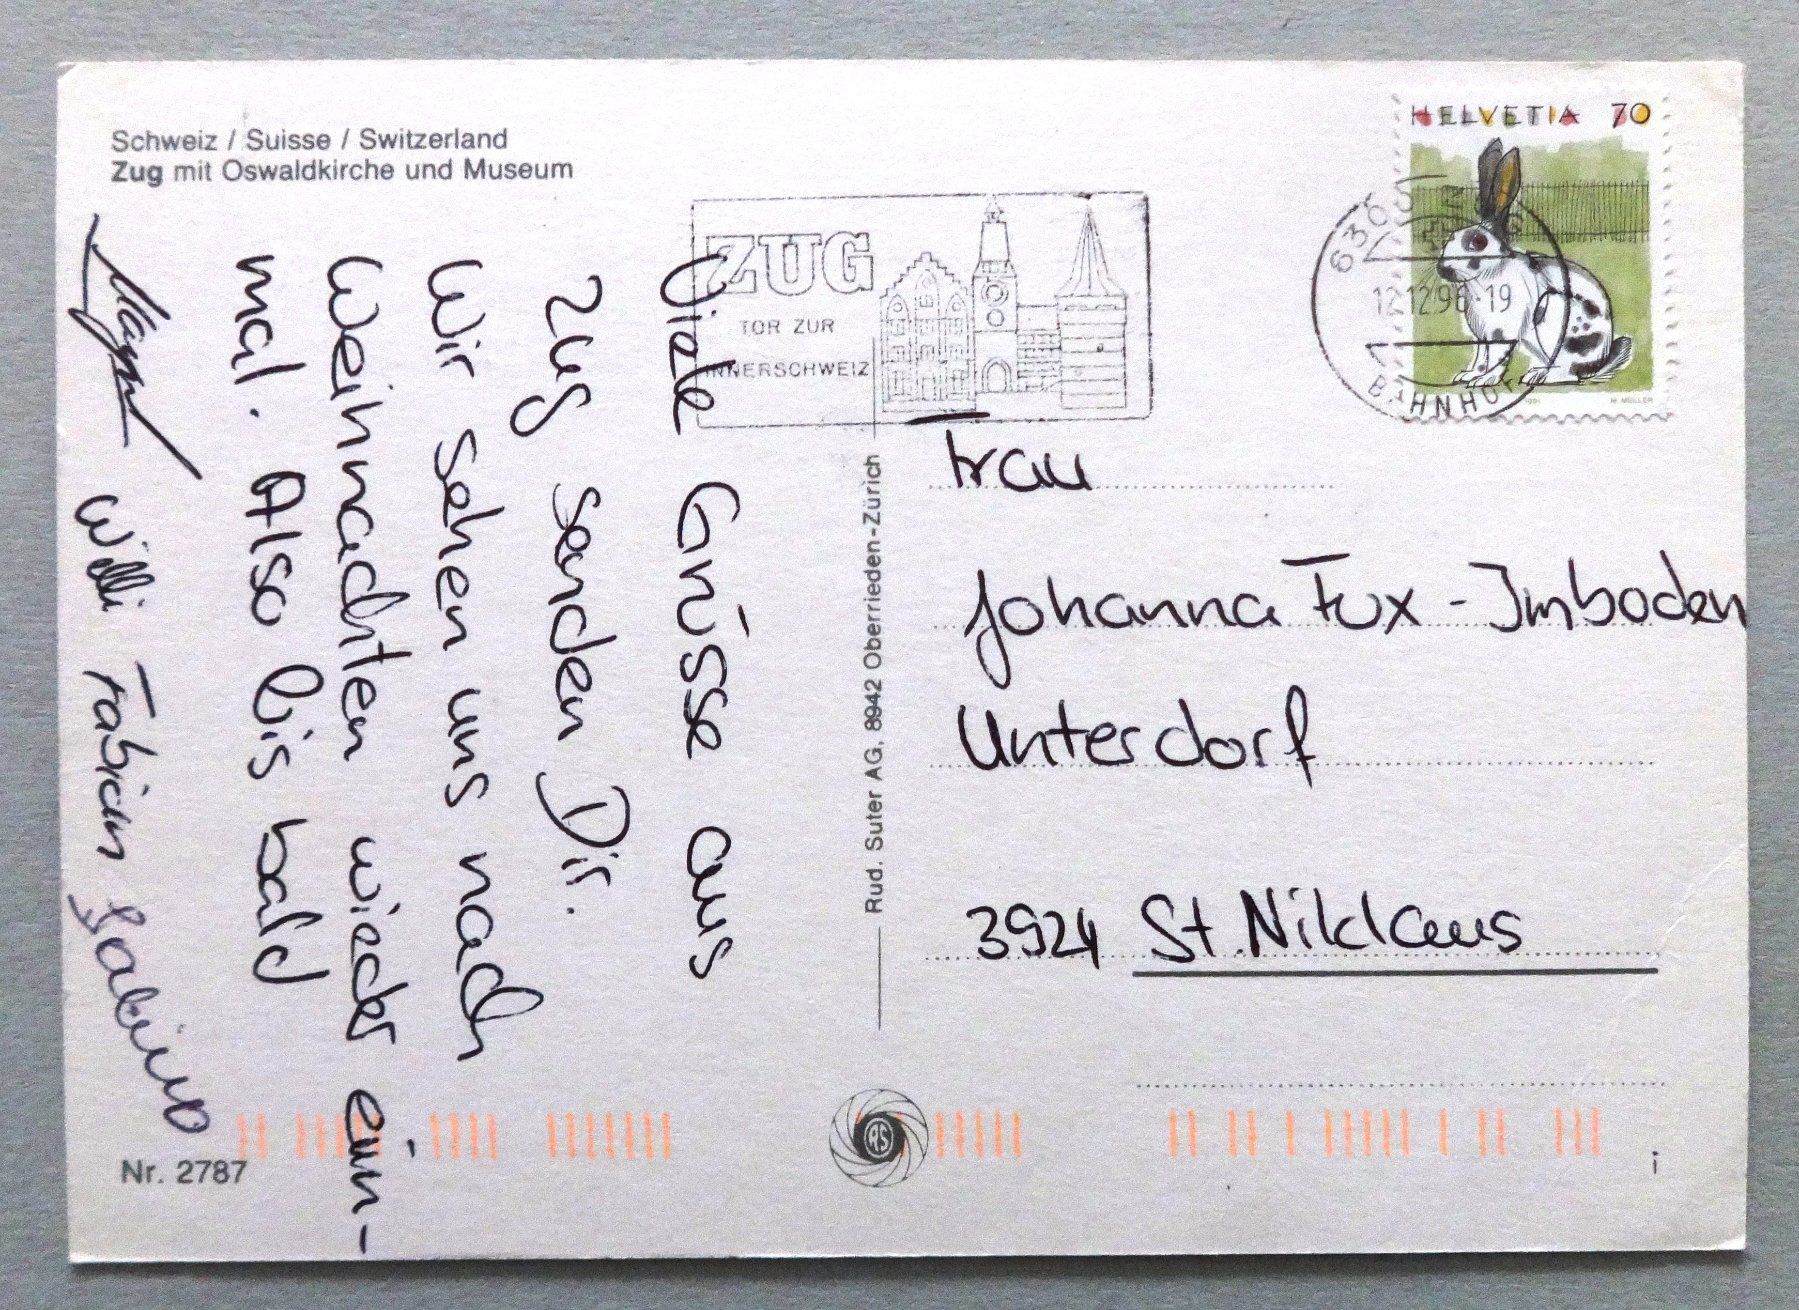 Schweiz / Suisse / Switzerland
Zug mit Oswaldkirche und Museum
Viele Grüsse aus
Zug senden Dir.
Wir sehen uns nach
Weihnachten wieder ein-
mal. Also bis bald
Willi Fabian
Nr. 2787
Rud. Suter AG, 8942 Oberrieden-Zürich
RS
ZUG
TOR ZUR
INNERSCHWEIZ
HELVETIA 70
6300
12.12.96-19
BAHNHOF
1991
H. MÜLLER
Frau
Johanna Fux-Imboden
Unterdorf
3924 St. Niklaus
i